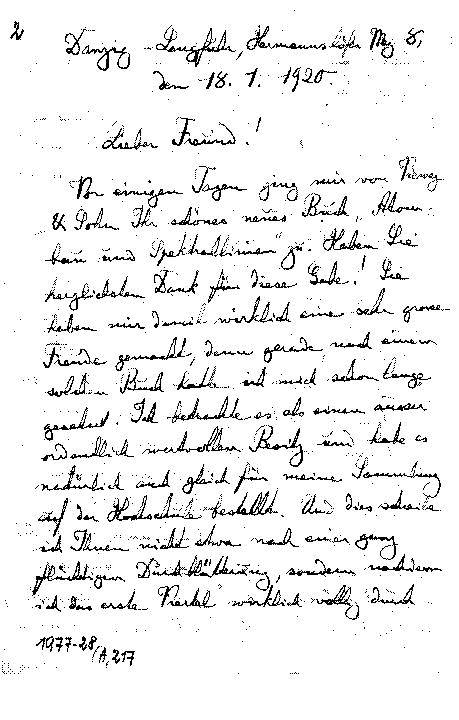 2
Danzig-Langfuhr, Hermannshöfer Weg 8,
den 18. 1. 1920.
Lieber Freund!
Vor einigen Tagen ging mir von Vieweg
& Sohn Ihr schönes neues Buch „Atom-
bau und Spektrallinien" zu. Haben Sie
herzlichsten Dank für diese Gabe! Sie
haben mir damit wirklich eine sehr grosse
Freude gemacht, denn gerade nach einem
solchen Buch hatte ich mich schon lange
gesehnt. Ich betrachte es als einen ausser
ordentlich wertvollen Besitz und habe es
natürlich auch gleich für meine Sammlung
auf der Hochschule bestellt. Und dies schreibe
ich Ihnen nicht etwa nach einer ganz
flüchtigen Durchblätterung, sondern nachdem
ich das erste Viertel wirklich völlig durch
1977-28/A,217